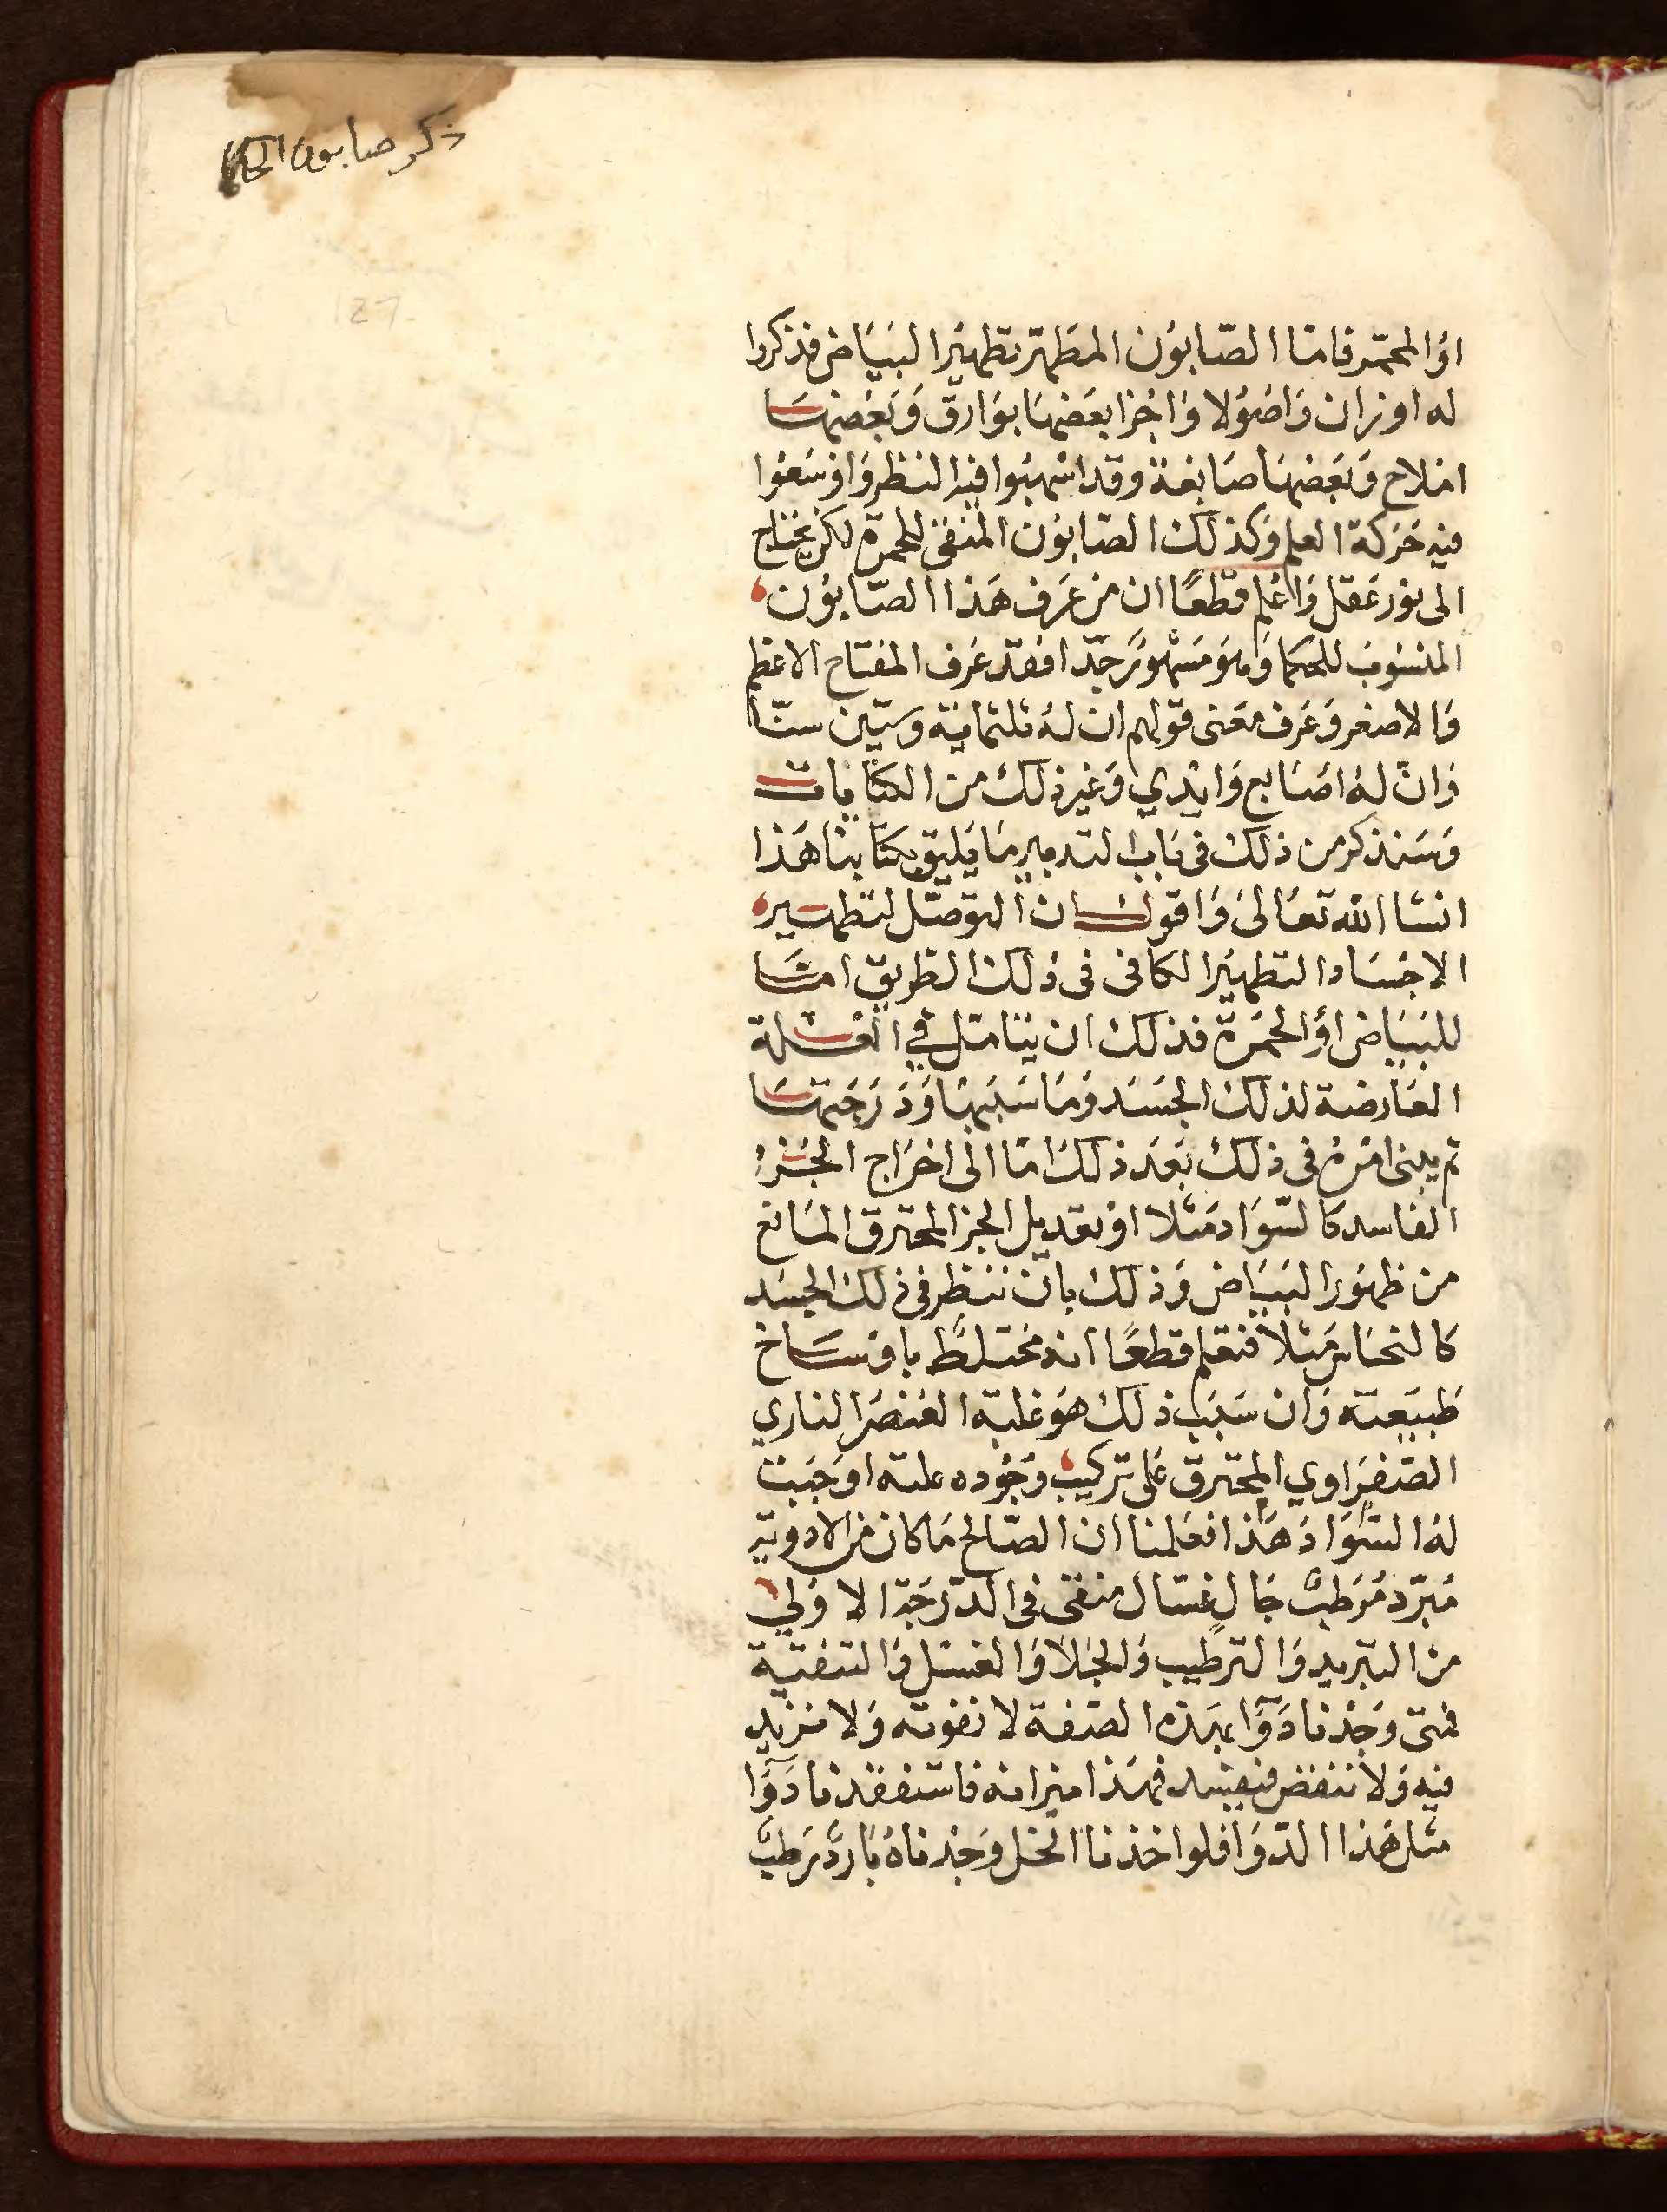 ذكر صابون الحكما
او المحمّر فامّا الصّابون المطهّر تطهير البياض فذكروا
له اوزان واصُولا واجزا بعضها بوارق وبعضها
املاح وبعضها صابغة وقد اسهبوا فيه النظر واوسعوا
فيه حركة العلم وكذلك الصّابون المنقى للحمرة لكن يحتاج
الى نور عقل واعلم قطعًا ان من عرف هذا الصّابون
المنسوب للحكما وهو مشهور جدّا فقد عرف المفتاح الاعظم
والاصغر وعرف معنى قولهم ان له ثلثماية وستين سنّا
وانّ له اصابع وايدي وغير ذلك من الكنايات
وسنذكر من ذلك في باب التدبير ما يليق بكتابنا هذا
انشا الله تعالى واقول ان التوصّل لتطهير
الاجساد التطهير الكافى فى ذلك الطريق امّا
للبياض او الحمرة فذلك ان يتامّل في العلة
العارضة لذلك الجسد وما سببها ودرجتها
ثم يبنى امره فى ذلك بعد ذلك امّا الى اخراج الجزء
الفاسد كالسّواد مثلا او بتعديل الجز المحترق المانع
من ظهور البياض وذلك بان ننظر في ذلك الجسد
كالنحاس مثلاً فنعلم قطعًا انه مختلط باوساخ
طبيعته وان سبب ذلك هو غلبة العنصر الناري
الصّفراوي المحترق على تركيب وجوده علة اوجبت
له السّواد هذا فعلمنا ان الصّالح ما كان من الادوية
مبرّد مرطبٌ جالٍ غسّال منقى فى الدّرجة الاولى
من التبريد والترطيب والجلا والغسل والتنقية
فمتى وجدنا دوآءً بهذه الصّفة لا نفوته ولا نزيد
فيه ولا ننقض فيفسد فهذا ميزانه فاستفقدنا دوآءً
مثل هذا الدّوا فلو اخذنا الخل وجدناه باردً رطبً